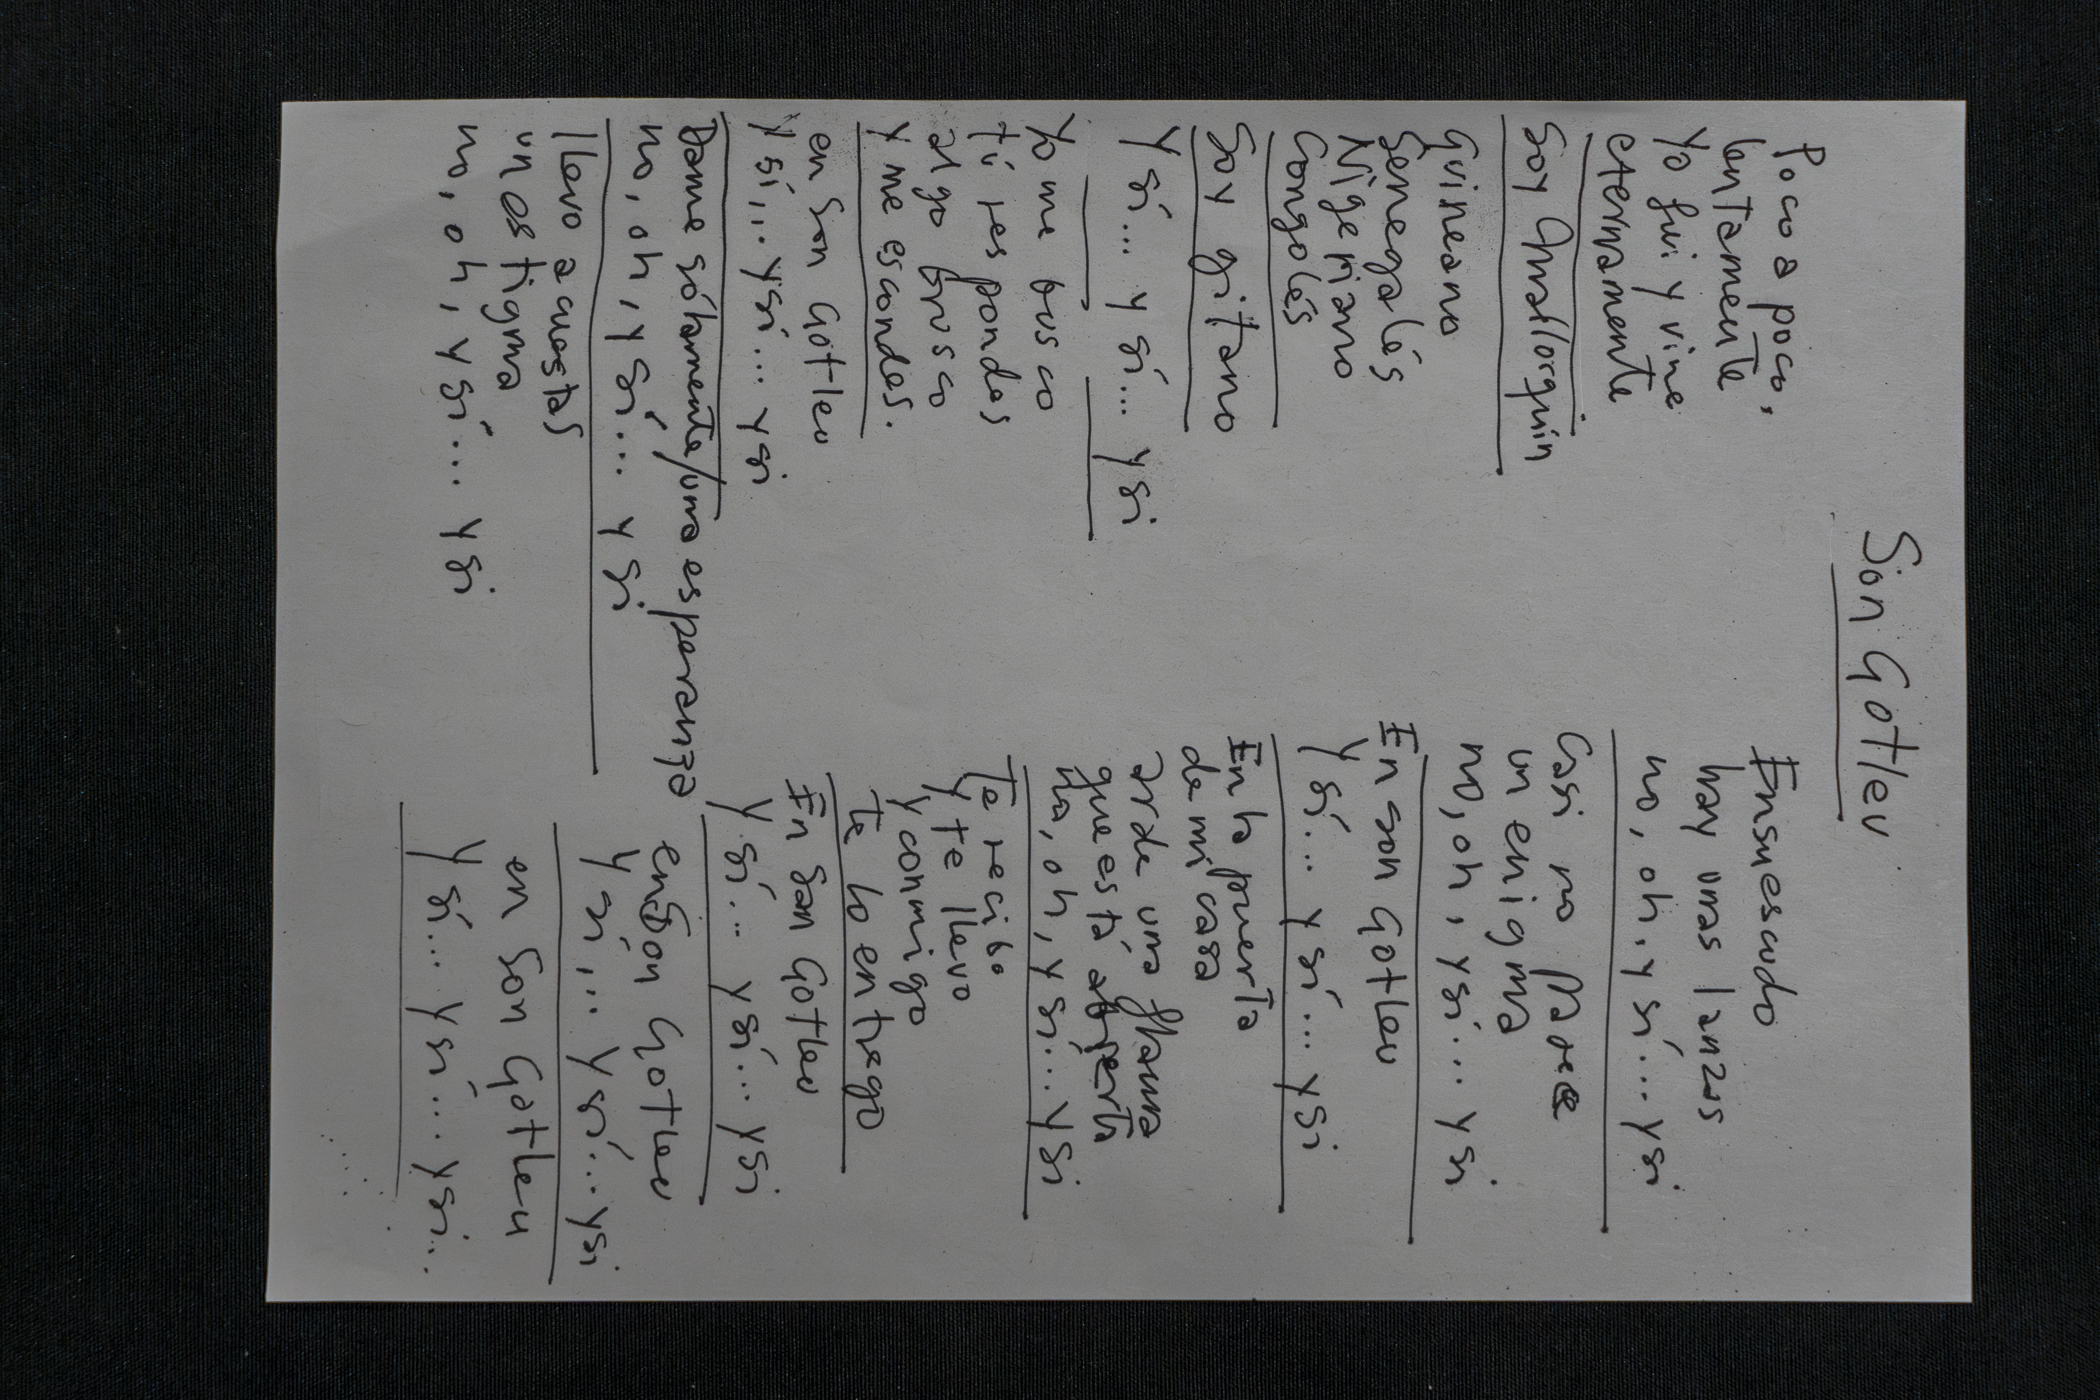 Son Gotleu
Poco a poco,
lentamente
Yo fui y vine
eternamente
Soy mallorquin
Guineano
Senegalés
Nigeriano
Congolés
Soy gitano
Y sí... y sí... y si
Yo me busco
tú respondes
algo brusco
y me escondes.
en Son Gotleu
y sí... y sí... y si
Dame sólamente/una esperanza
no, oh, y sí... y si
llevo acuestas
un estigma
no, oh, y sí... y si
En su escudo
hay unas lanzas
no, oh, y sí... y si
Casi no parece
un enigma
no, oh, y sí... y si
En son Gotleu
y sí... y sí... y si
En la puerta
de mi casa
arde una flama
que está abierta
no, oh, y sí... y si
Te recibo
y te llevo
y conmigo
te lo entrego
En Son Gotleu
y sí... y sí... y si
en Son Gotleu
y sí... y sí... y si
en Son Gotleu
y sí... y sí... y si...